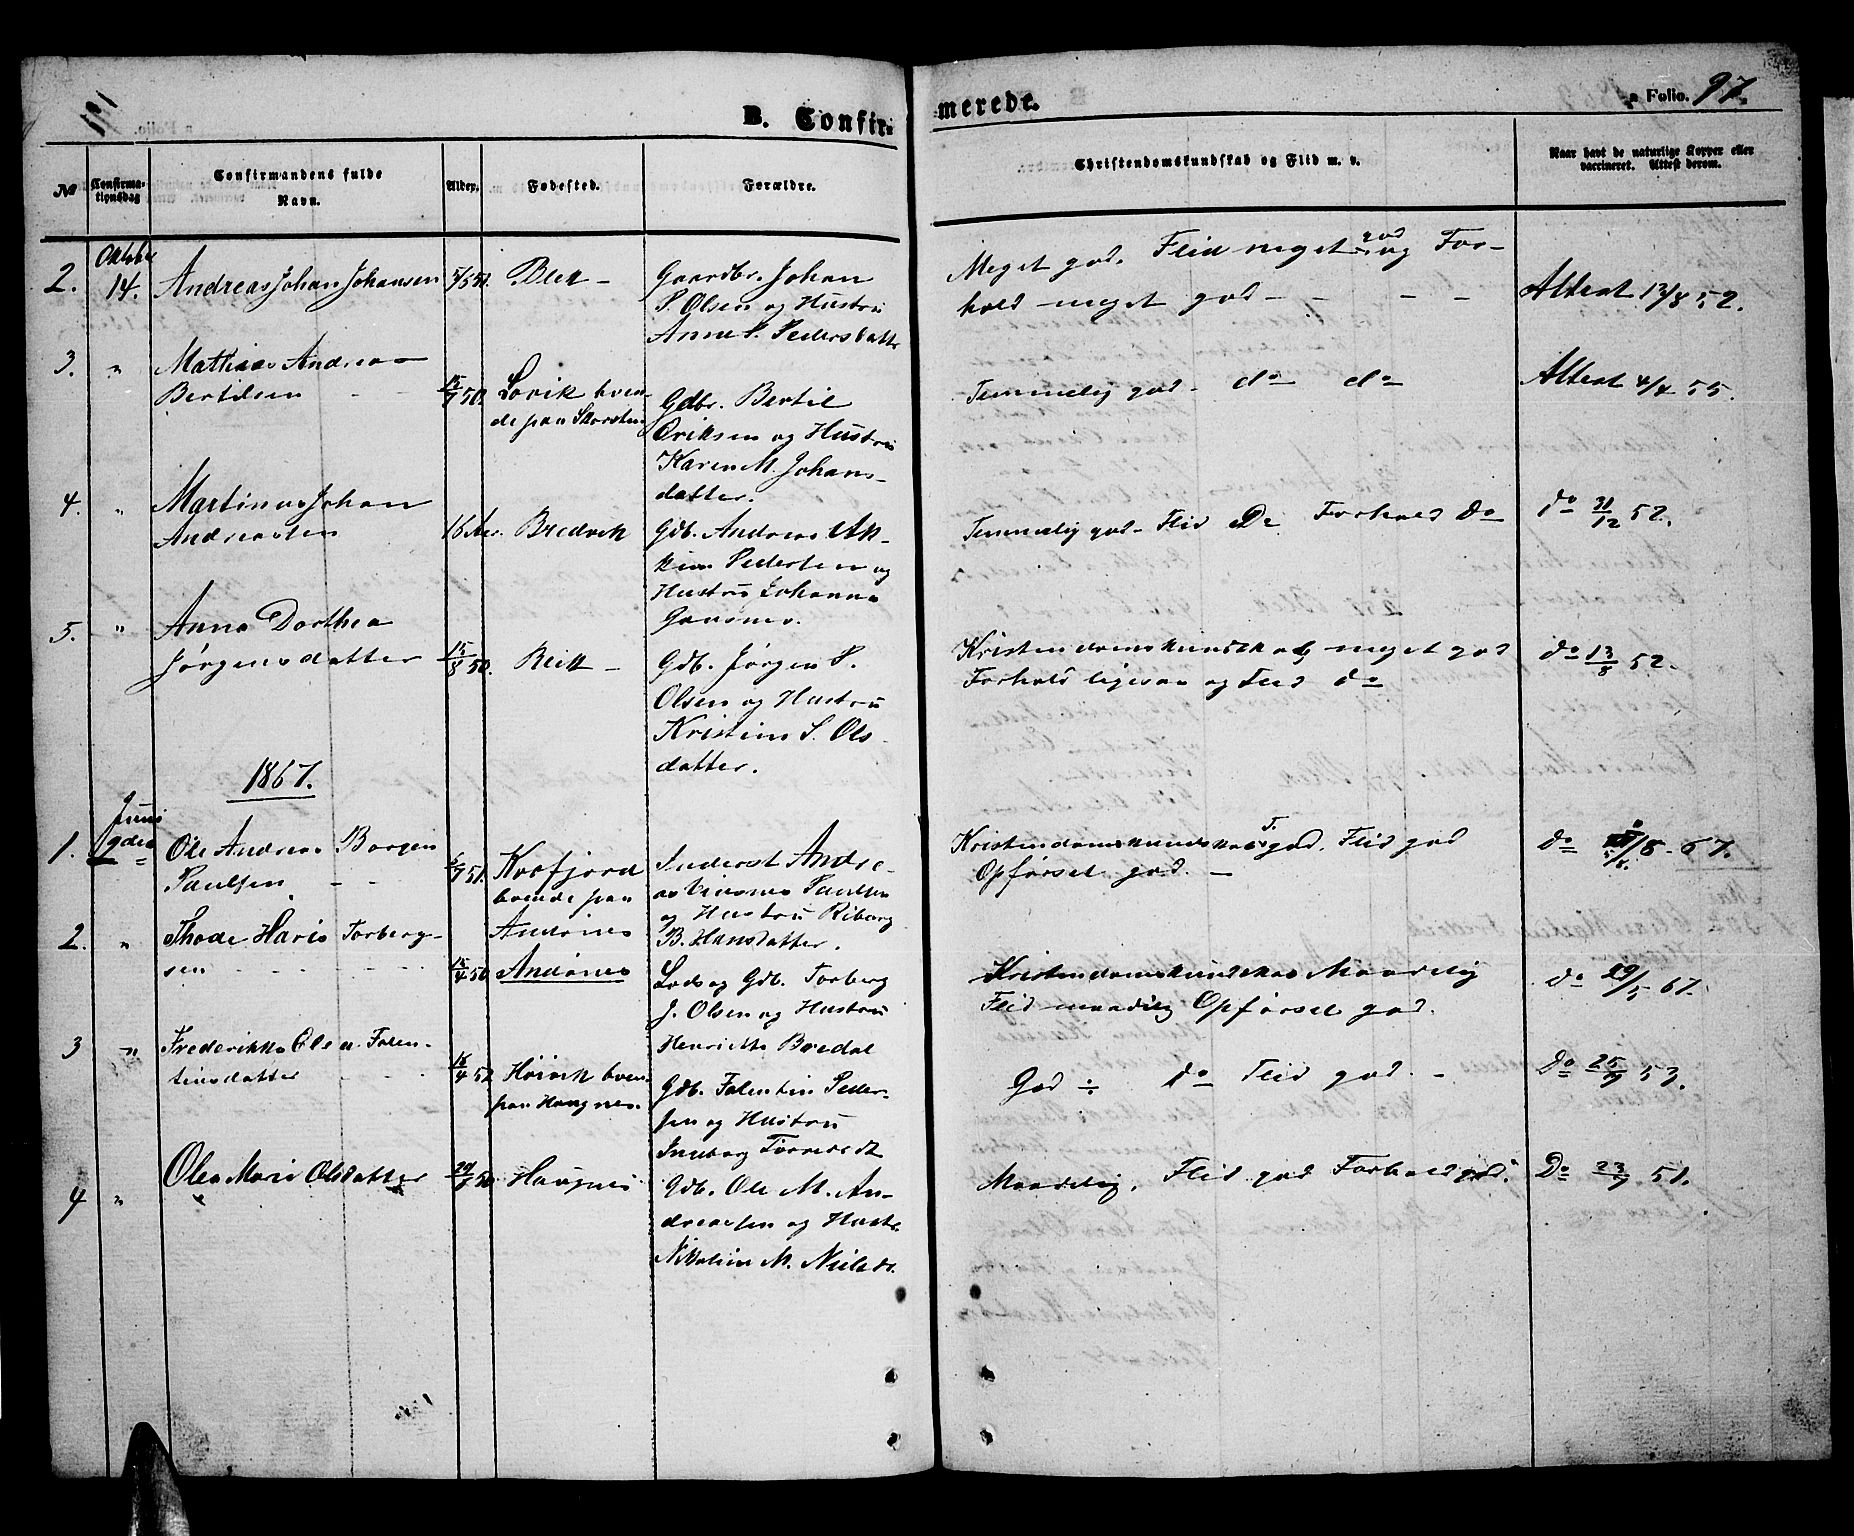 B. Confirmerede.
a Folio. 97.
No
Confirmationsdag
Confirmandens fulde Navn.
Alder.
Fødested.
Forældre.
Christendomskundskab og Flid m. v.
Naar havt de naturlige Kopper eller vaccineret. Attest derom.
2.
Oktober 14.
Andreas Johan Johansen
5/5 51.
Bleik –
Gaardbr. Johan
P. Olsen og Hustru
Anne P. Pedersdatter
Meget god. Flid meget god og For-
hold meget god – – – –
Attest 13/8 52.
3.
"
Mathias Andreas
Bertilsen – –
50.
Lovik boen-
de paa Skorsten
Gdbr. Bertil
Eriksen og Hustru
Karen M. Johans-
datter.
Temmelig god – do do
Attest 4/4 55.
4.
"
Martinus Johan
Andreassen
16 Aar.
Bredvik
Gdb. Andreas
Pedersen og
Hustru Johanna
Temmelig god – Flid Do Forhold Do
do 31/12 52.
5.
"
Anna Dorthea
Jørgensdatter
15/8 50.
Bleik –
Gdb. Jørgen P.
Olsen og Hustru
Kristine S. Ols-
datter.
Kristendomskundskab meget god
Forhold ligesaa og Flid do
do 13/8 52.
1867.
1.
Juni 9de
Ole Andreas Borgen
Paulsen – –
51.
Kvofjord
boende paa
Andenes
Inderst Andre-
as Paulsen
og Hustru Riborg
B. Hansdatter.
Kristendomskundskab T. god. Flid god
Opførsel god. –
do 67.
2.
"
Thode Haris Torberg-
sen – – – –
15/4 50
Andenes
Lods og Gdb. Torberg
J. Olsen og Hustru
Henriette Bredal
Kristendomskundskab Maadelig
Flid maadelig Opførsel god.
do 29/5 67.
3
"
Frederikke Olea Falen-
tinsdatter – –
16/4 52
Høivik boen.
paa Haugnes.
Gdb. Falentin Peder-
sen og Hustru
Ineborg
God ÷ do Flid god. –
Do 25/9 53.
4
"
Olea Marie Olsdatter
50
Haugnes
Gdb. Ole M. An-
dreassen og Hustr.
Nikoline M. Nielsdt.
Maadelig. Flid god Forhold god.
Do 23/9 51.